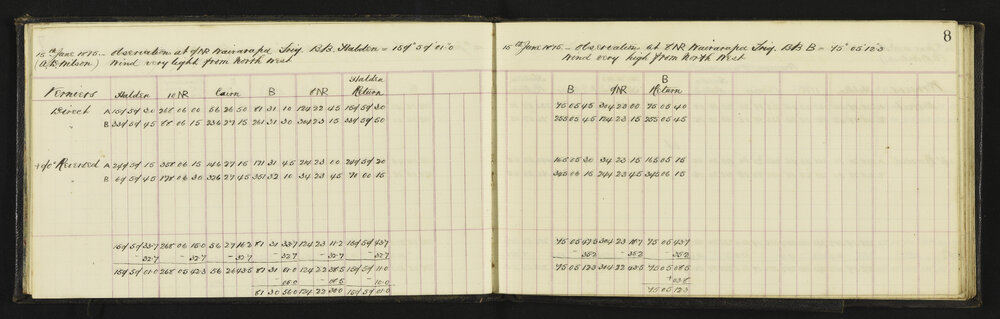 15th June 1875 – Observation at 9NR Wairarapa Trig. BB. Halden = 159° 59' 01·0
(A.R. Wilson) Wind very light from North West
Halden
Verniers Halden 10NR Cairn B 9NR Return
Direct A 159 59 30 268 06 00 56 26 50 81 31 10 124 22 45 159 59 30
B 339 59 45 88 06 15 236 27 15 261 31 30 304 23 15 339 59 50
Reversed A 249 59 15 358 06 15 146 27 15 171 31 45 214 23 00 249 59 20
B 69 59 45 178 06 30 326 27 45 351 32 10 34 23 45 70 00 15
159 59 33·7 268 06 15·0 56 27 16·2 81 31 33·7 124 23 11·2 159 59 43·7
– 32·7 – 32·7 – 32·7 – 32·7 – 32·7 – 32·7
159 59 01·0 268 05 42·3 56 26 43·5 81 31 01·0 124 22 38·5 159 59 11·0
05·0 – 08·5 – 10·0
81 30 56·0 124 22 30·0 159 59 01·0
8
15th June 1875 – Observation at 8NR Wairarapa Trig. BB B = 75° 05' 12·3
Wind very high from North West
B
B 9NR Return
75 05 45 304 23 00 75 05 40
255 05 45 124 23 15 255 05 45
165 05 30 34 23 15 165 05 15
345 06 15 214 23 45 345 06 15
75 05 47·5 304 23 18·7 75 05 43·7
– 35·2 – 35·2 – 35·2
75 05 12·3 304 22 43·5 75 05 08·5
+ 03·8
75 05 12·3